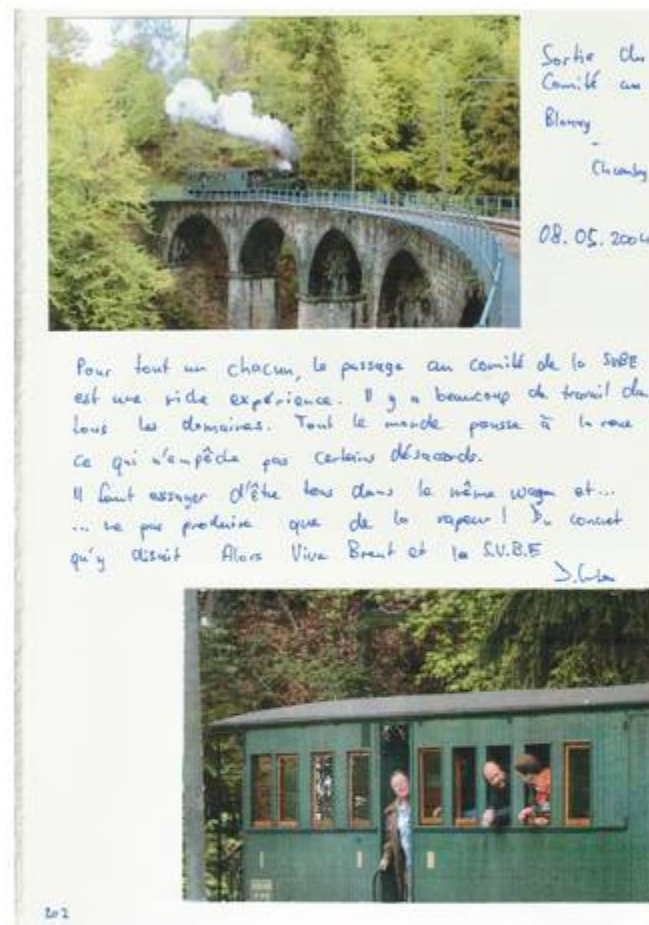 Sortie du
Comité au
Blonay
-
Chamby
08.05.2004
Pour tout un chacun, le passage au comité de la SVBE
est une riche expérience. Il y a beaucoup de travail da
tous les domaines. Tout le monde pousse à la roue
ce qui n'empêche pas certains désaccords.
Il faut essayer d'être tous dans le même wagon et...
... ne pas produire que de la vapeur ! Du concret
qu'y disait Alors Vive Brent et la S.V.B.E
202